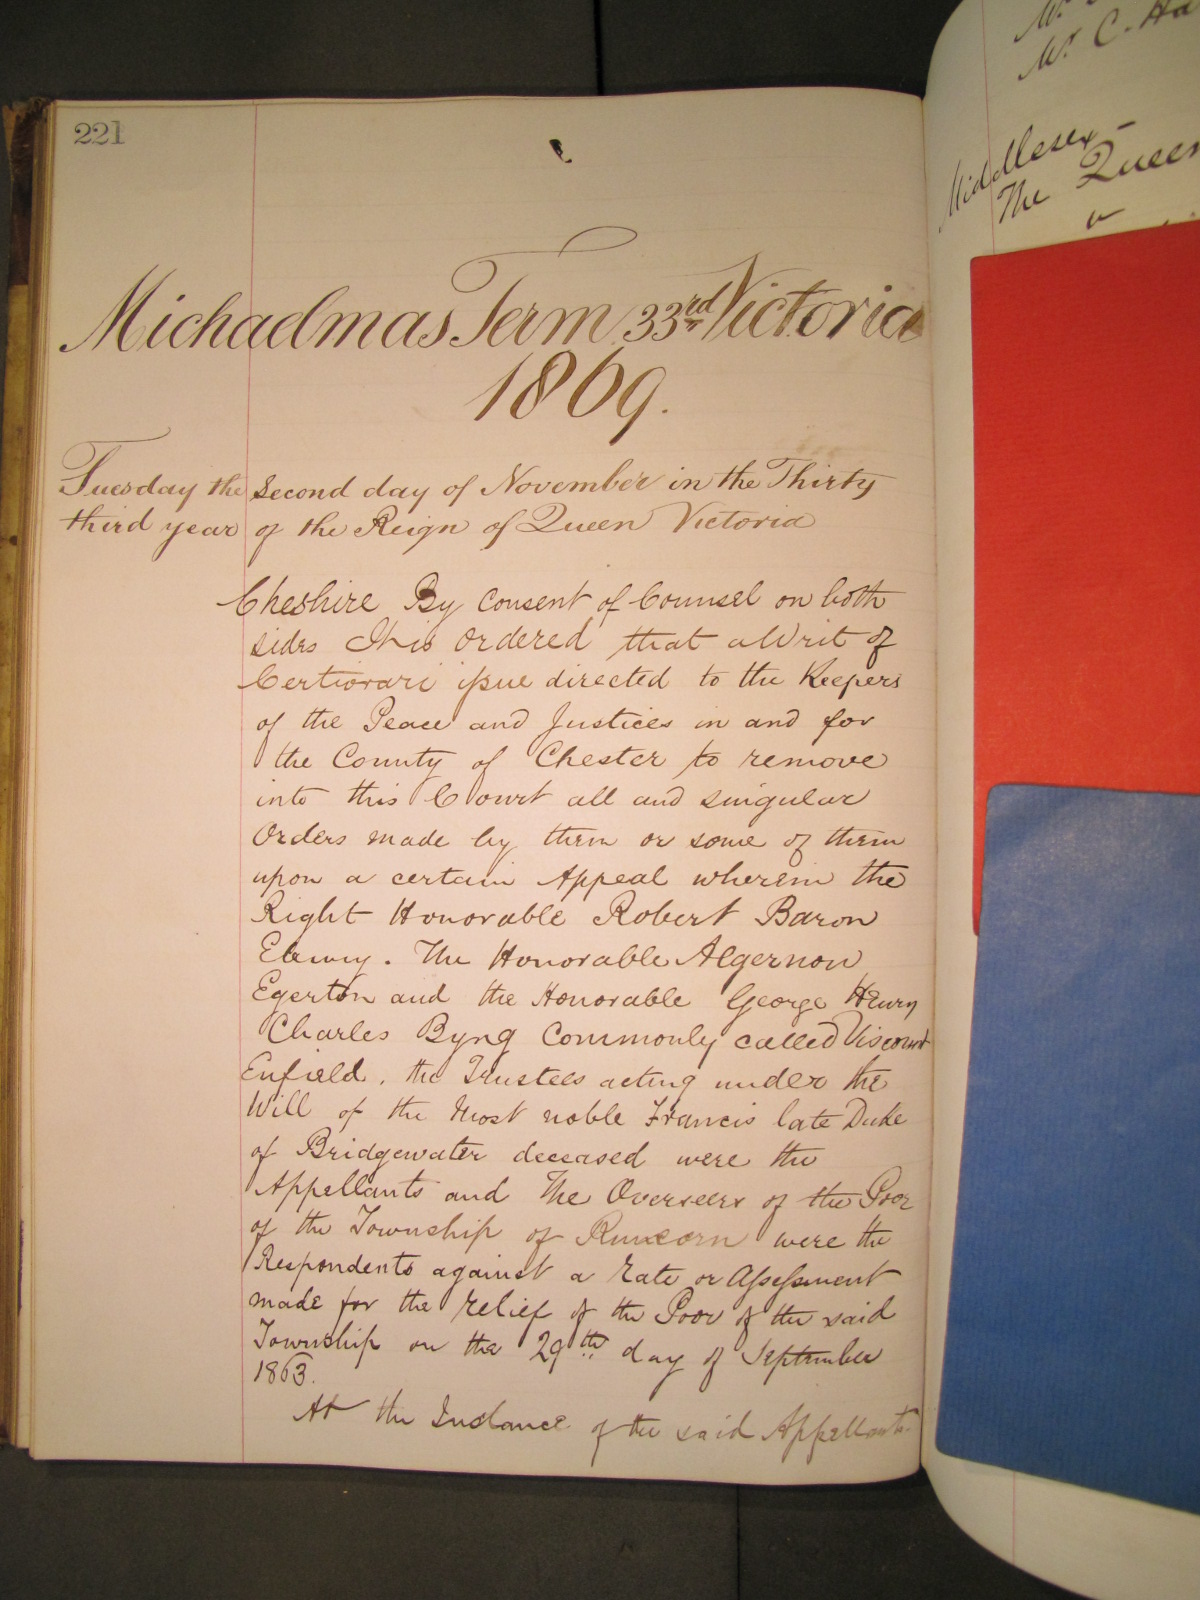 221
Michaelmas Term 33rd Victoria
1869.
Tuesday the Second day of November in the Thirty
third year of the Reign of Queen Victoria
Cheshire By Consent of Counsel on both
sides It is Ordered that a Writ of
Certiorari issue directed to the Keepers
of the Peace and Justices in and for
the County of Chester to remove
into this Court all and singular
Orders made by them or some of them
upon a certain Appeal wherein the
Right Honorable Robert Baron
The Honorable Algernon
Egerton and the Honorable George Henry
Charles Byng Commonly called Viscount
Enfield, the Trustees acting under the
Will of the Most noble Francis late Duke
of Bridgewater deceased were the
Appellants and The Overseers of the Poor
of the Township of Runcorn were the
Respondents against a Rate or Assessment
made for the relief of the Poor of the said
Township on the 29th day of September
1863.
At the Instance of the said Appellants.
Mr. C. Ha
Middlesex
The Queen
v